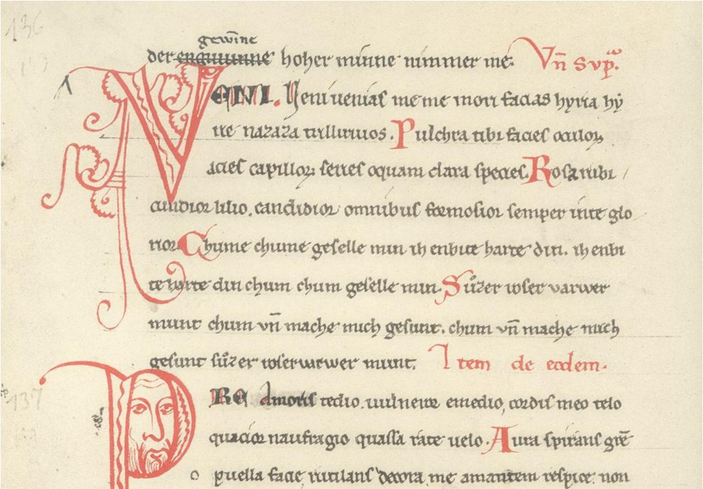 gewĩne
der enguinne hoher minne nimmer me. Vñ supͣ.
VENI. Ueni uenias ne me mori facias hyria hy
rie nazaza trillirivos. Pulchra tibi facies oculoꝝ
acies capilloꝝ series o quam clara species. Rosa rubi
cundior lilio. candidior omnibus formosior semper in te glo
rior Chume chume geselle min ih enbite harte din. ih enbi
te harte din chum chum geselle min. Sůzer roser varwer
munt chum vñ mache mich gesunt. chum vñ mache mich
gesunt sůzer roservarwer munt. Item de eodem.
PRE Amoris tedio. uulneror emedio. cordis meo telo
quatior naufragio quassa rate uelo. Aura spirans gre
o puella facie rutilans decora. me amantem respice. non
136
137